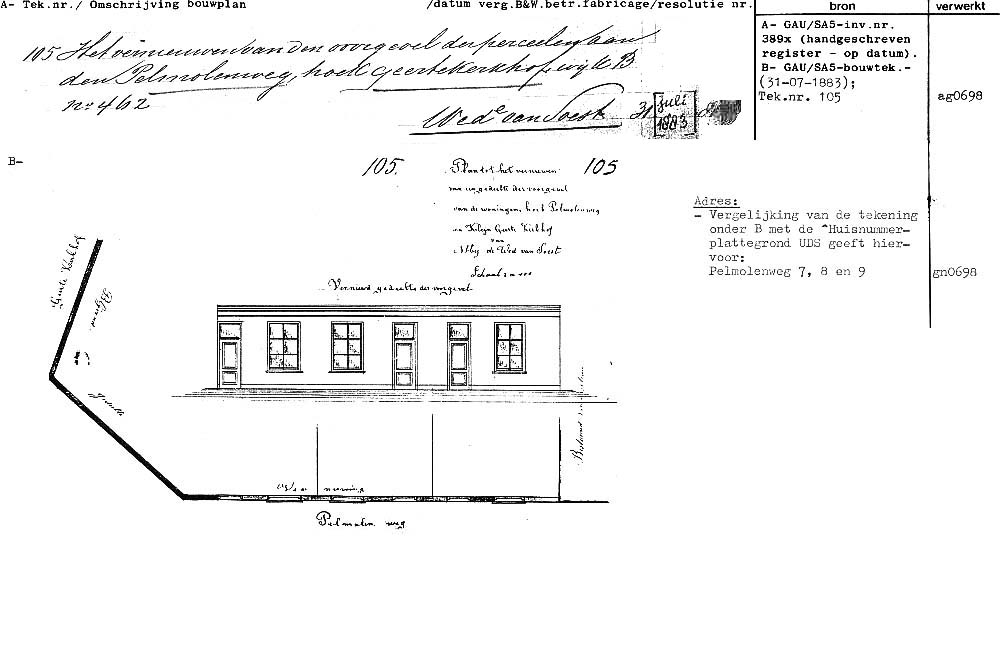 A- Tek.nr./ Omschrijving bouwplan /datum verg.B&W.betr.fabricage/resolutie nr. bron verwerkt
105 Het vernieuwen van den voorgevel der perceelen aan
den Pelmolenweg, hoek Geertekerkhof, wijk B
no 462
Wede van Soest 31 juli
1883
A- GAU/SA5-inv.nr.
389x (handgeschreven
register - op datum).
B- GAU/SA5-bouwtek.-
(31-07-1883);
Tek.nr. 105
ag0698
B-
105. 105
Plan tot het vernieuwen
van een gedeelte der voorgevel
van de woningen, hoek Pelmolenweg
en Geerte Kerkhof
van
de Wed van Soest
Schaal
Vernieuwd gedeelte der voorgevel
Adres:
- Vergelijking van de tekening
onder B met de ^Huisnummer-
plattegrond UDS geeft hier-
voor:
Pelmolenweg 7, 8 en 9
gn0698
Geerte Kerkhof
gedeelte
Pelmolen weg